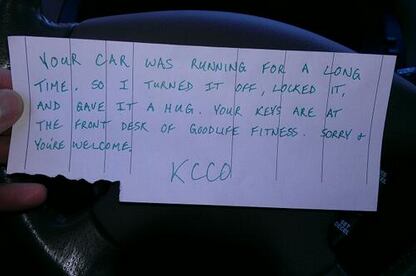 YOUR CAR WAS RUNNING FOR A LONG
TIME. SO I TURNED IT OFF, LOCKED IT,
AND GAVE IT A HUG. YOUR KEYS ARE AT
THE FRONT DESK OF GOODLIFE FITNESS. SORRY &
YOU'RE WELCOME.
KCCO